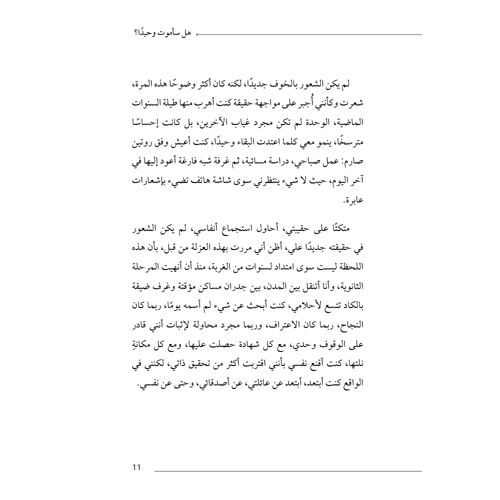 هل سأموت وحيدًا؟
لم يكن الشعور بالخوف جديدًا، لكنه كان أكثر وضوحًا هذه المرة،
شعرت وكأنني أُجبر على مواجهة حقيقة كنت أهرب منها طيلة السنوات
الماضية، الوحدة لم تكن مجرد غياب الآخرين، بل كانت إحساسًا
مترسخًا، ينمو معي كلما اعتدت البقاء وحيدًا، كنت أعيش وفق روتين
صارم: عمل صباحي، دراسة مسائية، ثم غرفة شبه فارغة أعود إليها في
آخر اليوم، حيث لا شيء ينتظرني سوى شاشة هاتف تضيء بإشعارات
عابرة.
متكئًا على حقيبتي، أحاول استجماع أنفاسي، لم يكن الشعور
في حقيقته جديدًا علي، أظن أني مررت بهذه العزلة من قبل، بأن هذه
اللحظة ليست سوى امتداد لسنوات من الغربة، منذ أن أنهيت المرحلة
الثانوية، وأنا أتنقل بين المدن، بين جدران مساكن مؤقتة وغرف ضيقة
بالكاد تتسع لأحلامي، كنت أبحث عن شيء لم أسمه يومًا، ربما كان
النجاح، ربما كان الاعتراف، وربما مجرد محاولة لإثبات أنني قادر
على الوقوف وحدي، مع كل شهادة حصلت عليها، ومع كل مكانةٍ
نلتها، كنت أقنع نفسي بأنني اقتربت أكثر من تحقيق ذاتي، لكنني في
الواقع كنت أبتعد، أبتعد عن عائلتي، عن أصدقائي، وحتى عن نفسي.
11